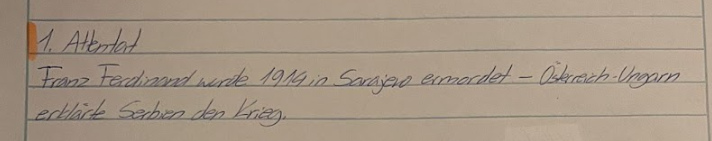 1. Attentat
Franz Ferdinand wurde 1914 in Sarajevo ermordet - Österreich-Ungarn
erklärte Serbien den Krieg.